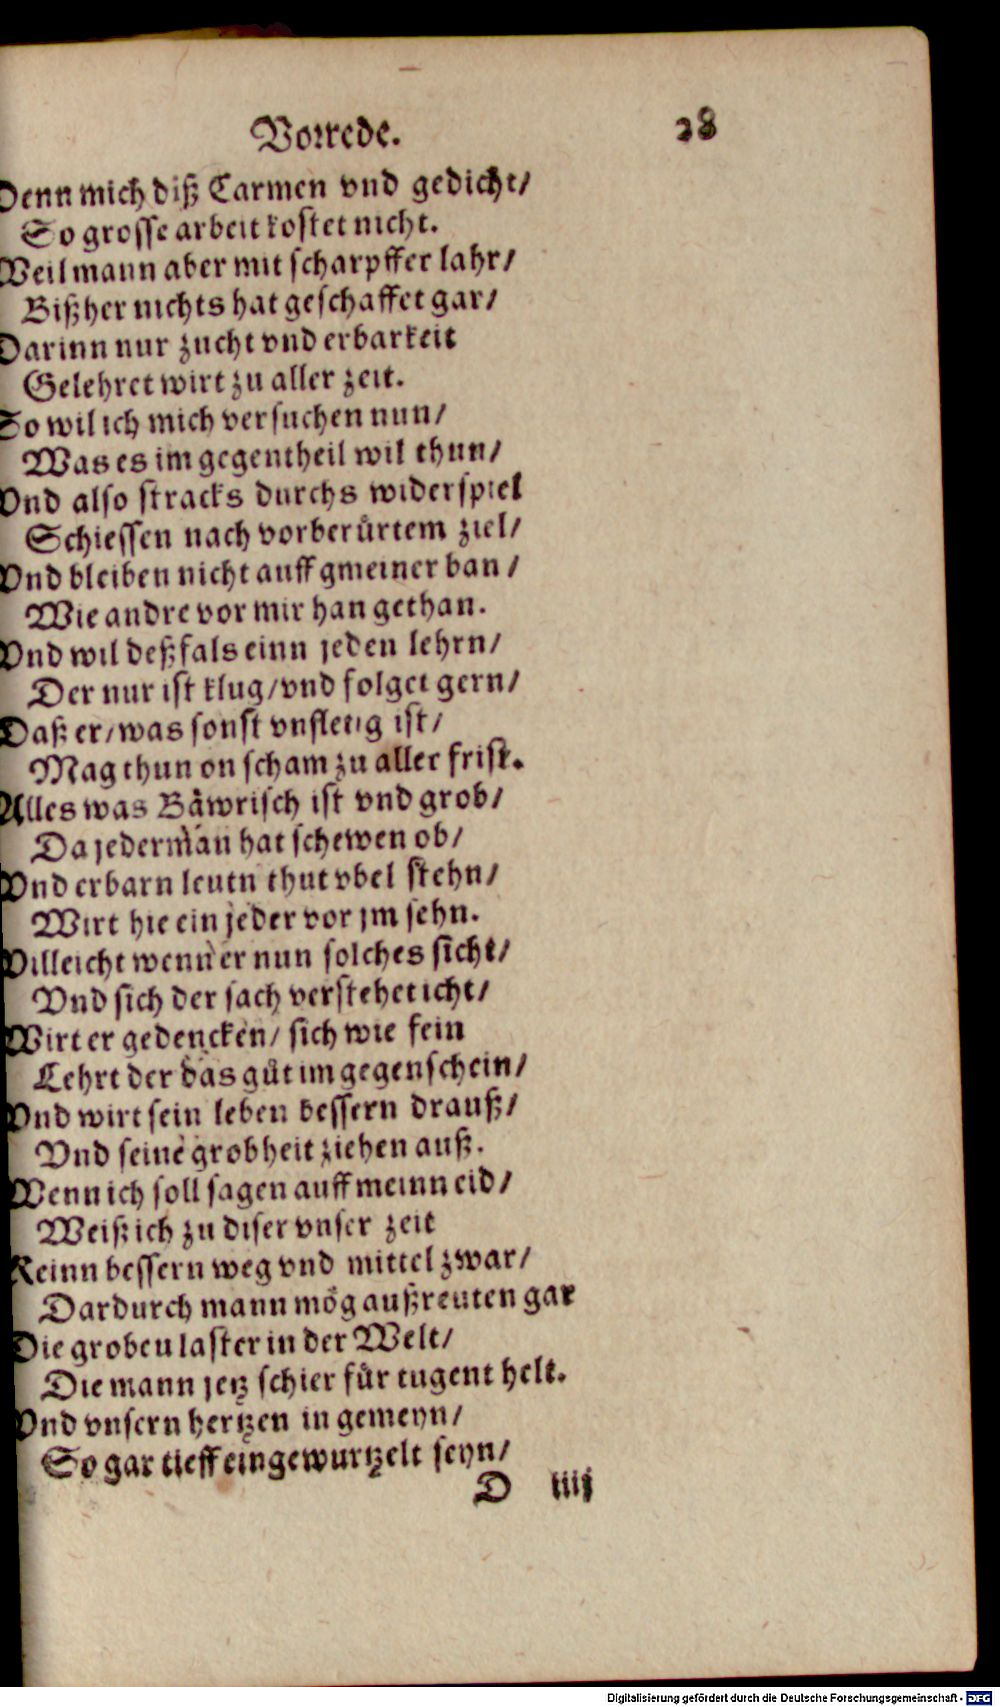 Vorrede. 28
Denn mich diß Carmen vnd gedicht/
So grosse arbeit kostet nicht.
Weil mann aber mit scharpffer lahr/
Bißher nichts hat geschaffet gar/
Darinn nur zucht vnd erbarkeit
Gelehret wirt zu aller zeit.
So wil ich mich versuchen nun/
Was es im gegentheil wil thun/
Vnd also stracks durchs widerspiel
Schiessen nach vorberürtem ziel/
Vnd bleiben nicht auff gmeiner ban/
Wie andre vor mir han gethan.
Vnd wil deßfals einn jeden lehrn/
Der nur ist klug/ vnd folget gern/
Daß er/ was sonst vnfletig ist/
Mag thun on scham zu aller frist.
Alles was Bäwrisch ist vnd grob/
Da jederman hat schewen ob/
Vnd erbarn leutn thut vbel stehn/
Wirt hie ein jeder vor jm sehn.
Villeicht wenn er nun solches sicht/
Vnd sich der sach verstehet icht/
Wirt er gedencken/ sich wie fein
Lehrt der das gůt im gegenschein/
Vnd wirt sein leben bessern drauß/
Vnd seine grobheit ziehen auß.
Wenn ich soll sagen auff meinn eid/
Weiß ich zu diser vnser zeit
Keinn bessern weg vnd mittel zwar/
Dardurch mann mög außreuten gar
Die groben laster in der Welt/
Die mann jetz schier für tugent helt.
Vnd vnsern hertzen in gemeyn/
So gar tieff eingewurtzelt seyn/
D iiij
Digitalisierung gefördert durch die Deutsche Forschungsgemeinschaft - DFG